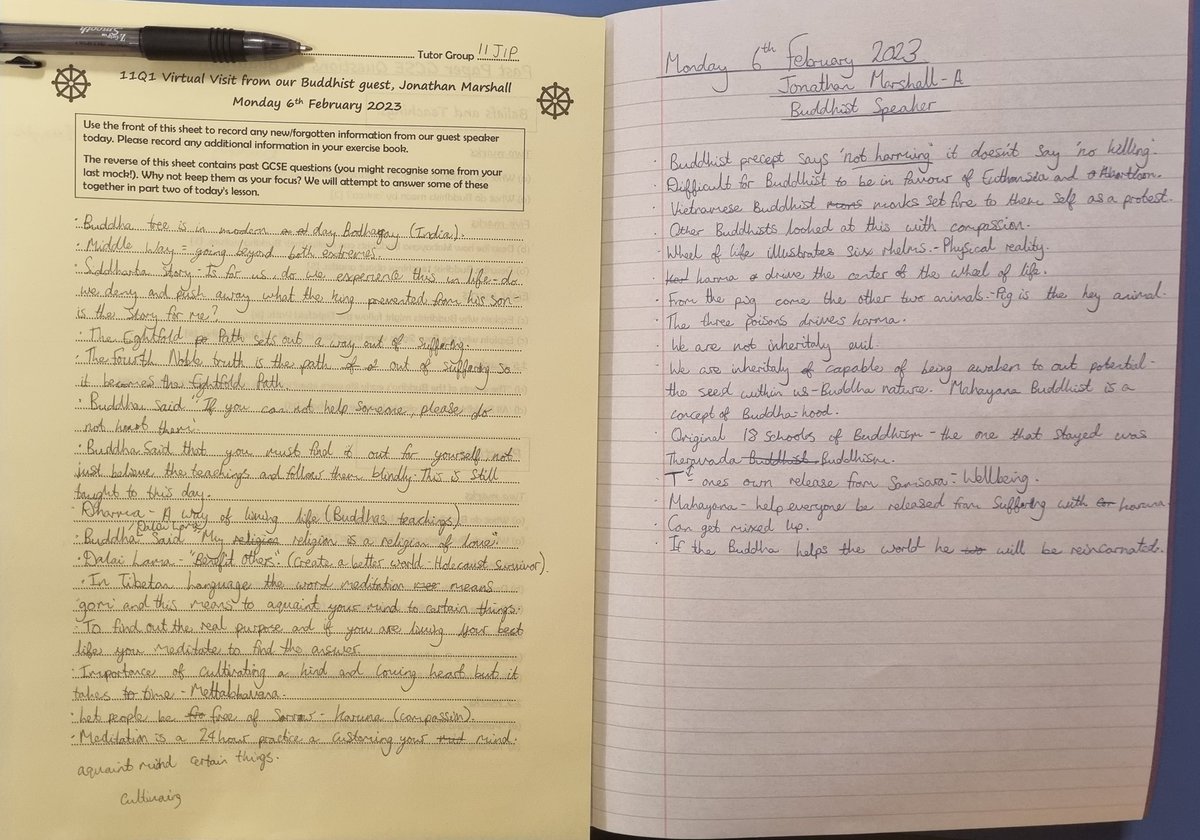 Tutor Group 11JIP
11Q1 Virtual Visit from our Buddhist guest, Jonathan Marshall
Monday 6th February 2023
Use the front of this sheet to record any new/forgotten information from our guest speaker
today. Please record any additional information in your exercise book.
The reverse of this sheet contains past GCSE questions (you might recognise some from your
last mock!). Why not keep them as your focus? We will attempt to answer some of these
together in part two of today's lesson.
· Buddha tree is in modern day Bodhagay (India).
· Middle Way = going beyond both extremes.
· Siddharta Story - Is for us, do we experience this in life - do
we deny and push away what the king prevented from his son -
is the Story for me?
· The Eightfold Path sets out a way out of Suffering.
· The Fourth Noble truth is the path out of suffering so
it becomes the Eightfold Path
· Buddha said "If you can not help someone, please do
not hurt them.
· Buddha Said that you must find it out for yourself not
just believe the teachings and follow them blindly. This is still
taught to this day.
· Dharma - A way of living life (Buddhas teachings)
· Buddha / Dalai Lama Said "My religion religion is a religion of love".
· Dalai Lama - "Benefit others" (Create a better world - Holocaust Survivor).
· In Tibetan Language the word meditation means
'gom' and this means to aquaint your mind to certain things.
· To find out the real purpose and if you are living your best
life you meditate to find the answer
· Importance of cultivating a kind and loving heart but it
takes time - Mettabhavana.
· Let people be free of Sorrow - Karuna (compassion).
· Meditation is a 24 hour practice a customing your mind.
aquaint mind certain things.
Monday 6th February 2023
Jonathan Marshall - A
Buddhist Speaker
· Buddhist precept says 'not harming' it doesn't say 'no killing'.
· Difficult for Buddhist to be in favour of Euthansia and Abortion.
· Vietnamese Buddhist monks set fire to them self as a protest.
· Other Buddhists looked at this with compassion.
· Wheel of life illustrates six rhelms. - Physical reality.
· karma drive the center of the wheel of life.
· From the pig come the other two animals. - Pig is the key animal.
· The three poisons drives karma.
· We are not inheritaly evil.
· We are inheritaly capable of being awaken to out potential -
the seed within us - Buddha nature. Mahayana Buddhist is a
concept of Buddha-hood.
· Original 18 Schools of Buddhism - the one that stayed was
Theravada Buddhist Buddhism.
· T - ones own release from Samsara = Wellbeing.
· Mahayana - help everyone be released from Suffering with karuna
· Can get mixed up.
· If the Buddha helps the world he will be reincarnated.